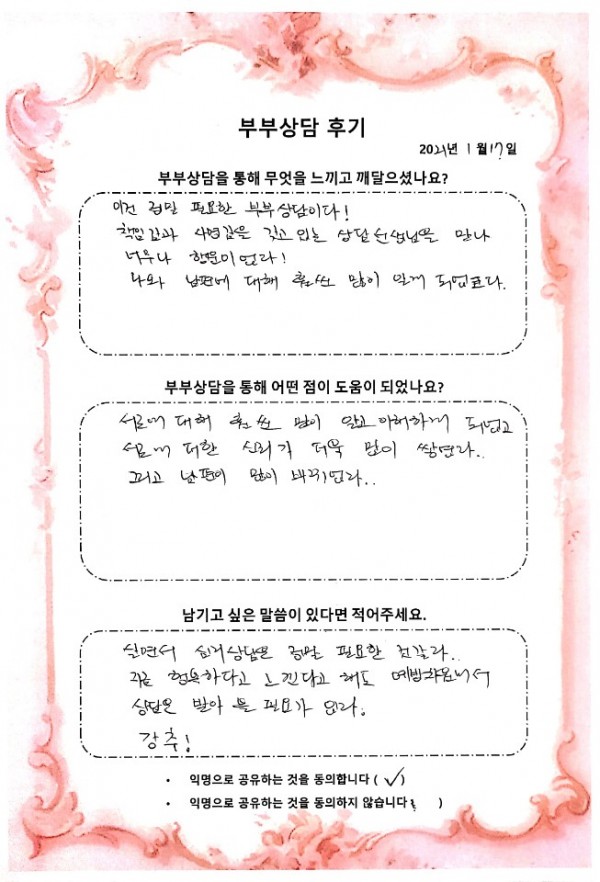 부부상담 후기
2021년 1월 17일
부부상담을 통해 무엇을 느끼고 깨달으셨나요?
이건 정말 필요한 부부상담이다!
책임감과 사명감을 갖고 있는 상담선생님을 만나
너무나 행운이었다!
나와 남편에 대해 훨씬 많이 알게 되었다.
부부상담을 통해 어떤 점이 도움이 되었나요?
서로에 대해 훨씬 많이 알고 이해하게 되었고
서로에 대한 신뢰가 더욱 많이 쌓였다..
그리고 남편이 많이 바뀌었다..
남기고 싶은 말씀이 있다면 적어주세요.
살면서 심리상담은 정말 필요한 것 같다..
지금 행복하다고 느낀다고 해도 예방차원에서
상담은 받아 볼 필요가 있다.
강추!
• 익명으로 공유하는 것을 동의합니다 ( ✓ )
• 익명으로 공유하는 것을 동의하지 않습니다 ( )